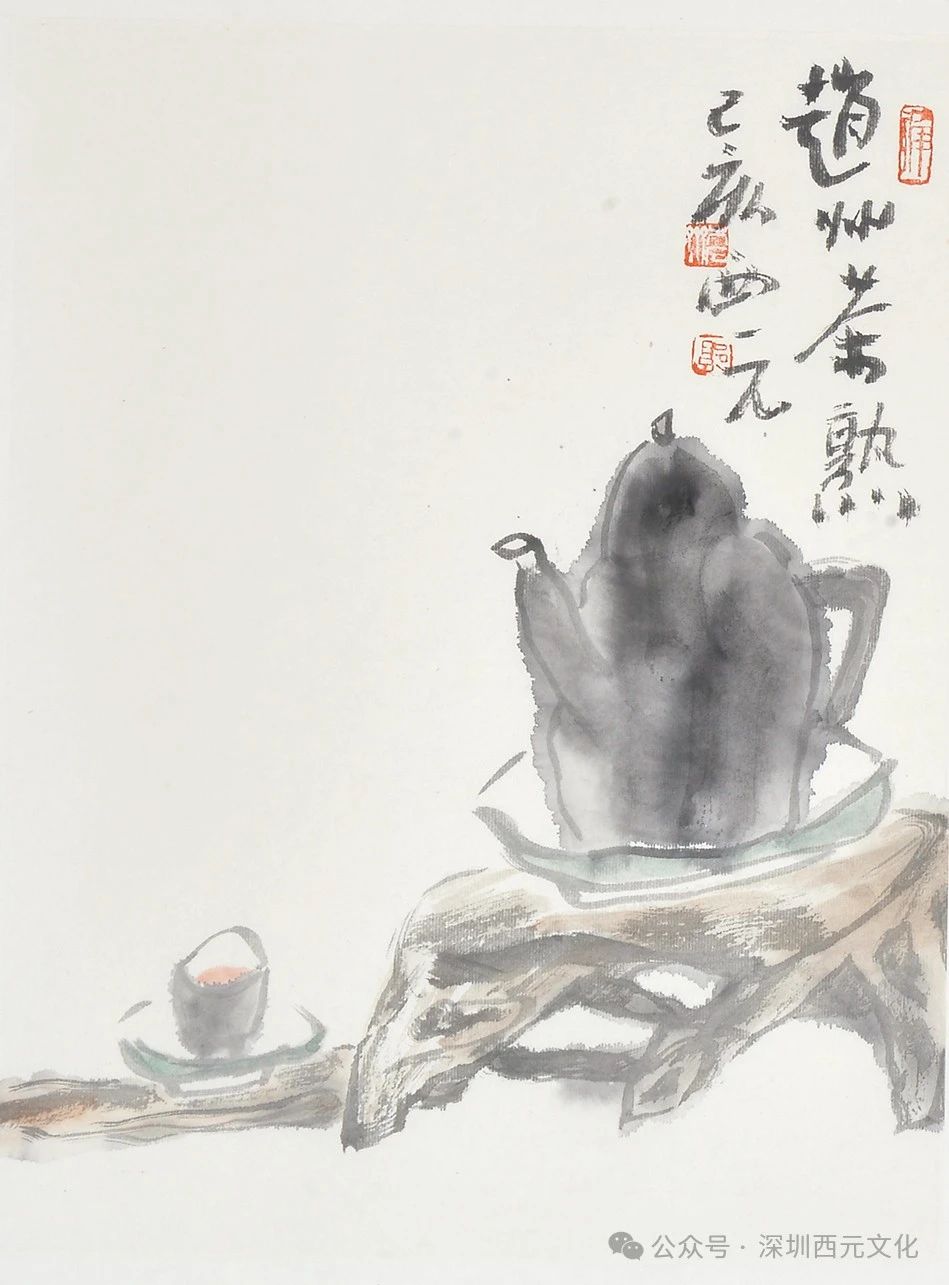 趙州茶熟
己亥西元
公众号·深圳西元文化